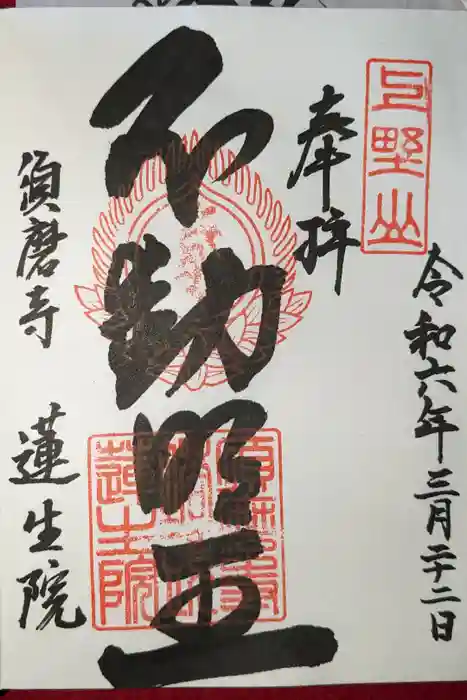 上野山
奉拝
令和六年三月二十二日
不動明王
須磨寺 蓮生院